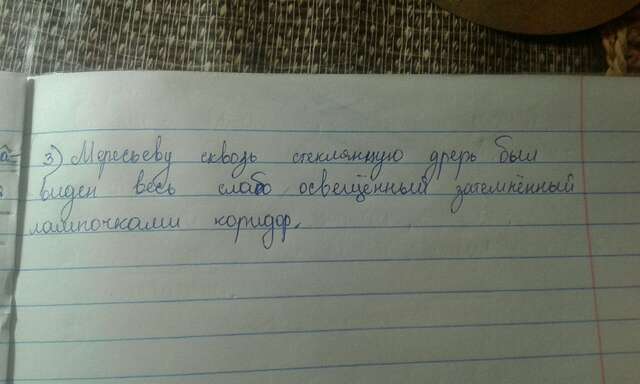 3) Мересьеву сквозь стеклянную дверь был
виден весь слабо освещённый затемнённый
лампочками коридор.